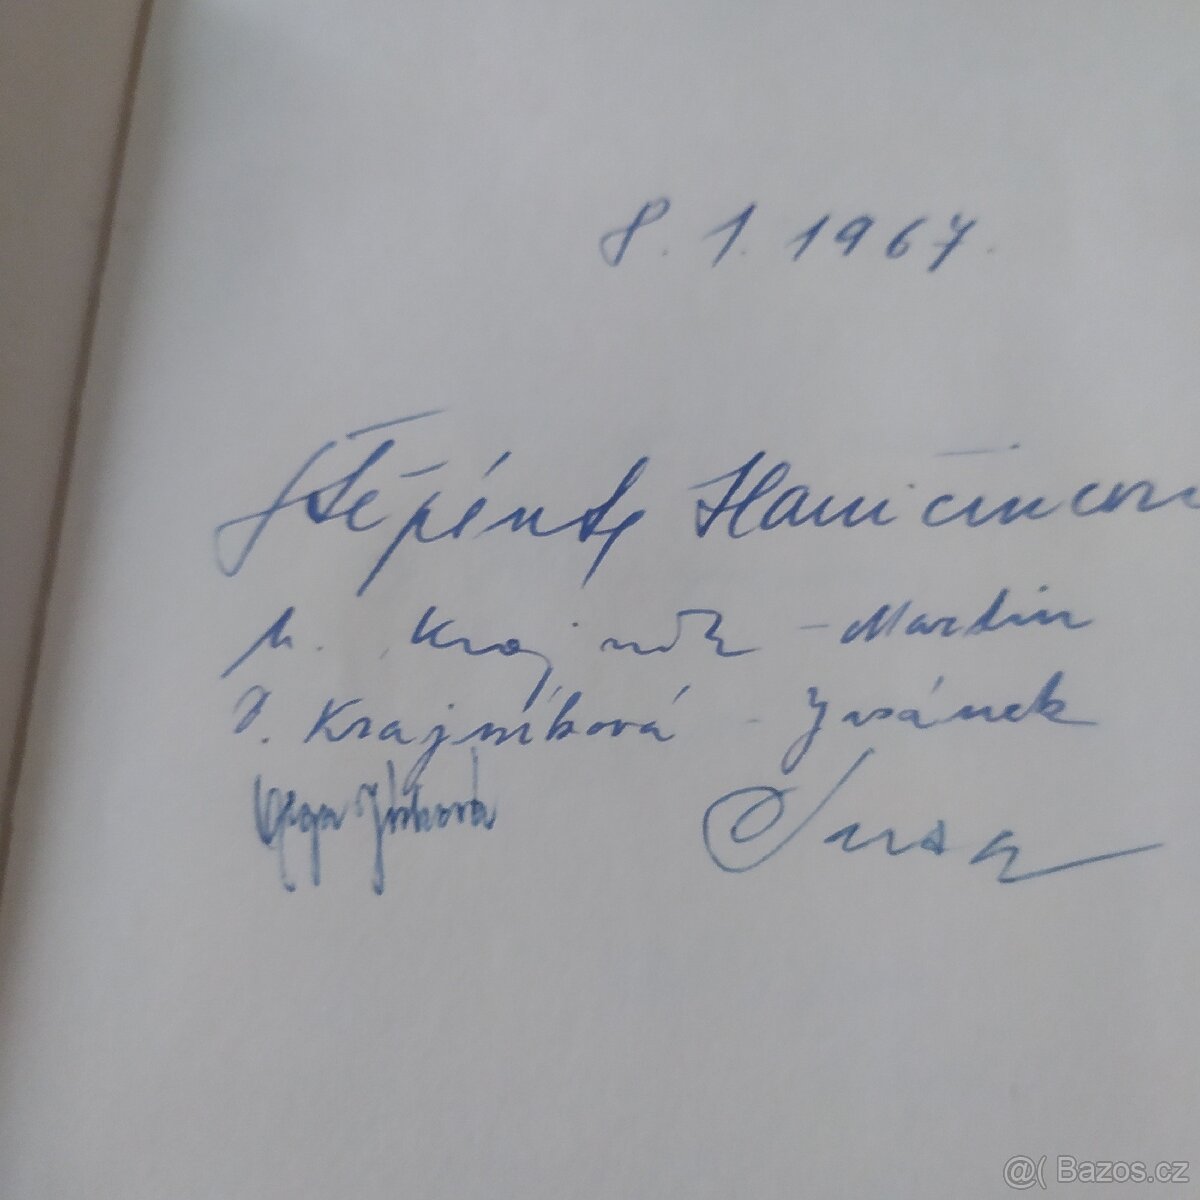 8. 1. 1967.
Štěpánka Haničincová
M. Krajník - Martin
J. Krajníková - Juránek
Olga
@( Bazos.cz